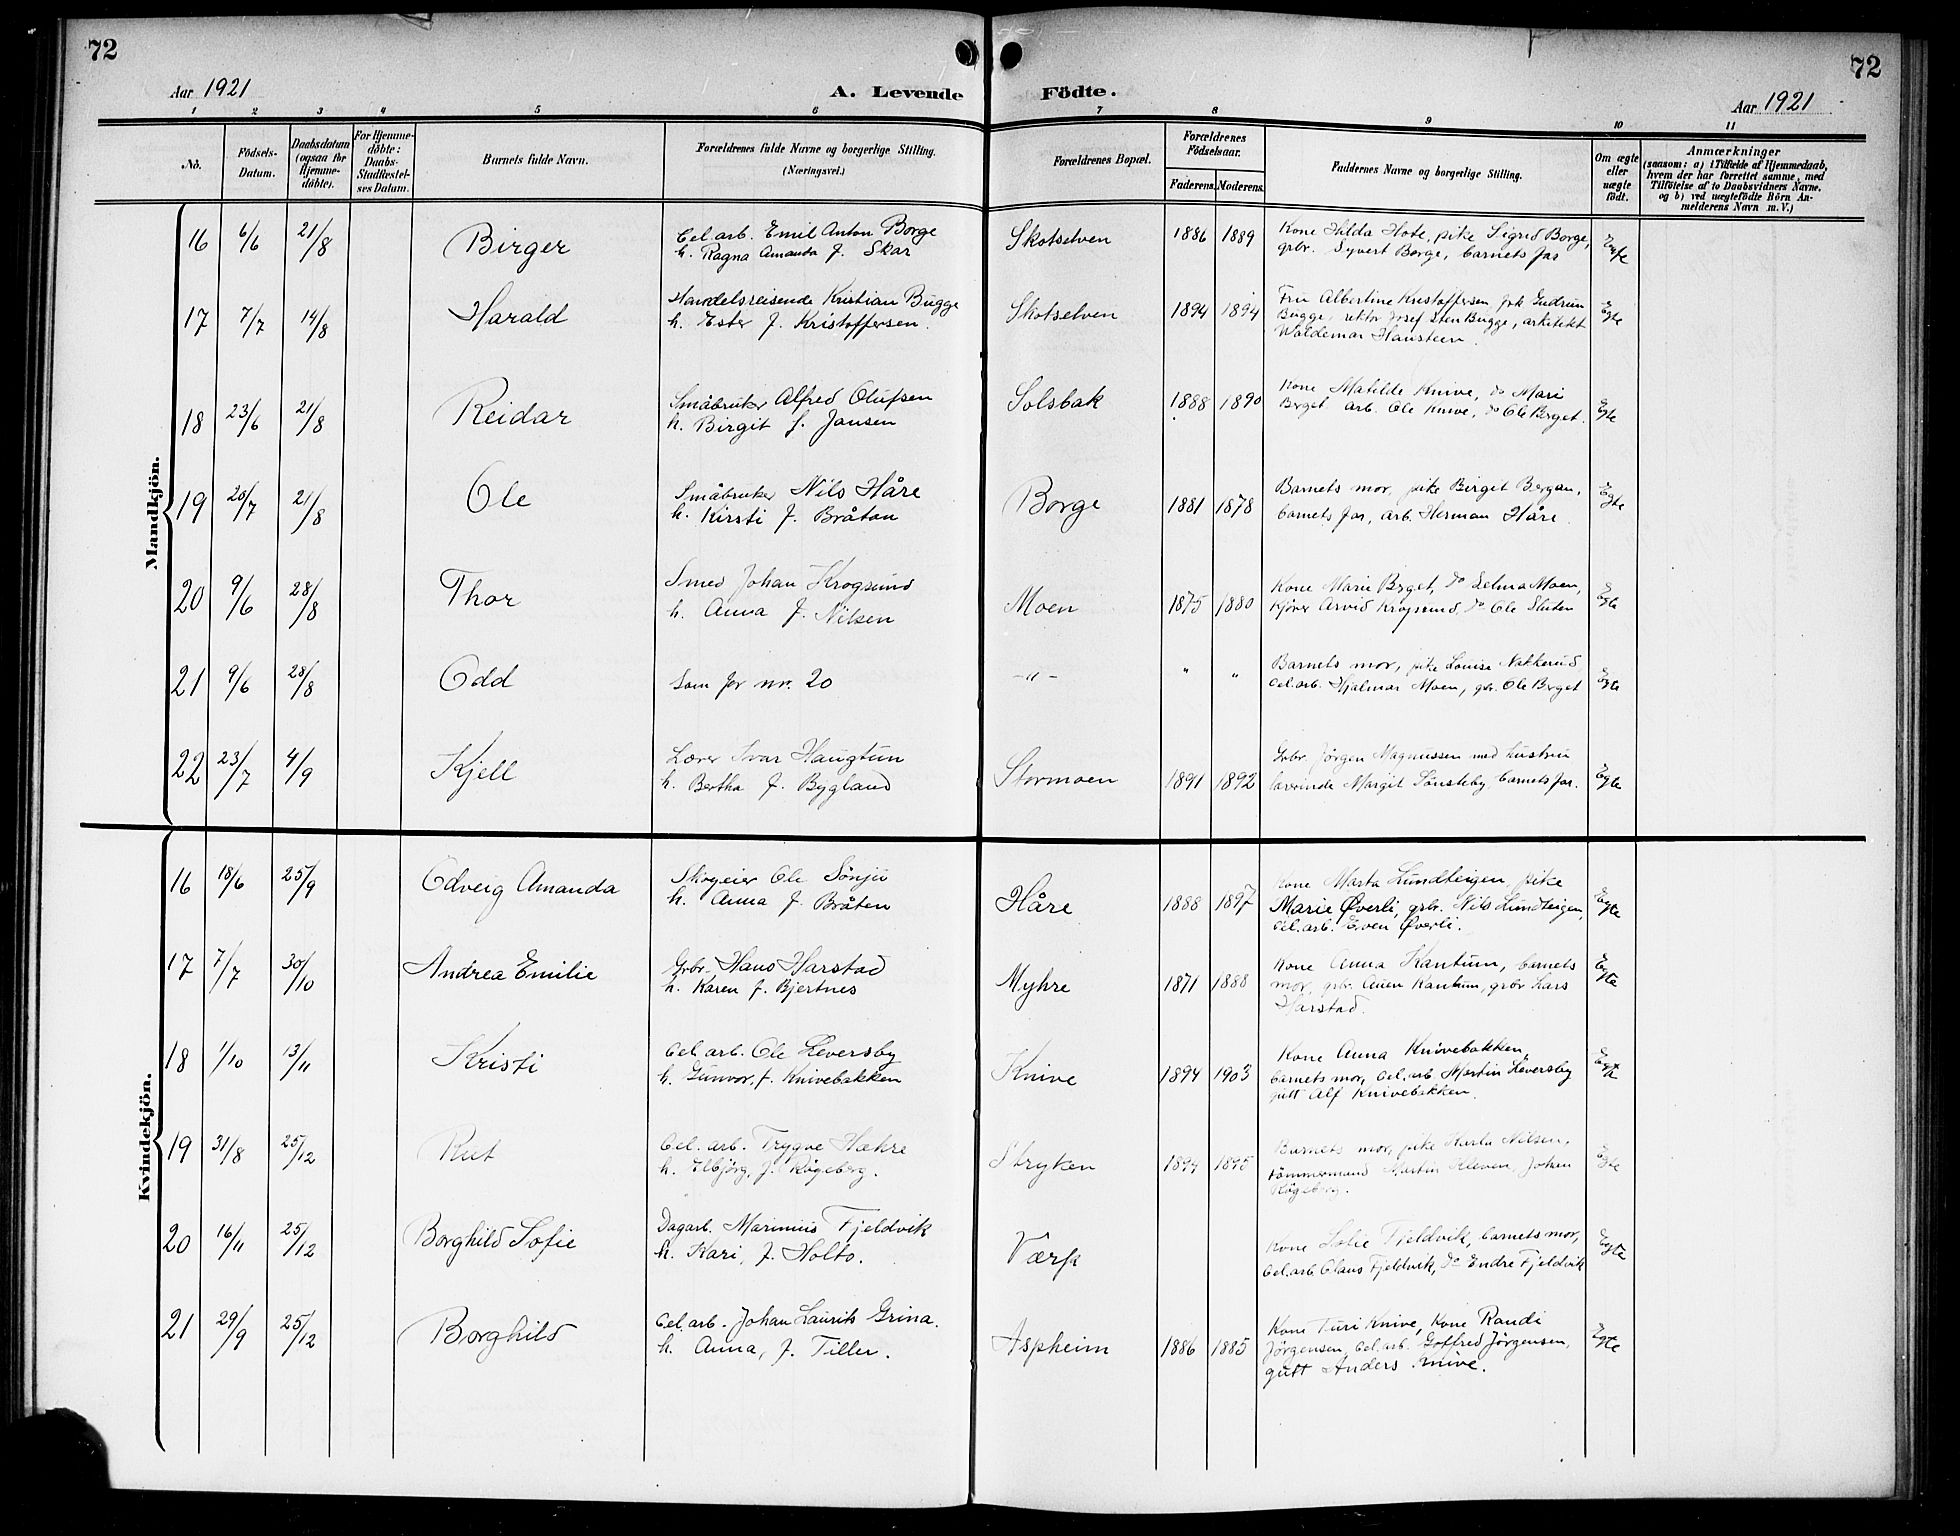 72
72
Aar 1921
A. Levende Födte.
Aar 1921
1 2 3 4 5 6 7 8 9 10 11
No.
Födsels-Datum.
Daabsdatum (ogsaa for Hjemme-döbte).
For Hjemme-döbte: Daabs-Stadfæstel-ses Datum.
Barnets fulde Navn.
Forældrenes fulde Navne og borgerlige Stilling. (Næringsvei.)
Forældrenes Bopæl.
Forældrenes Födselsaar.
Faderens.
Moderens.
Faddernes Navne og borgerlige Stilling.
Om ægte eller uægte födt.
Anmærkninger
(saasom: a) i Tilfælde af Hjemmedaab,
hvem der har forrettet samme, med
Tilföielse af to Daabsvidners Navne.
og b) ved uægtefödte Börn An-
melderens Navn m. V.)
Mandkjön.
16 6/6 21/8 Birger Cel.arb. Emil Anton Borge Skotselven 1886 1889 Kone Hilda Hote, pike Sigrid Borge, Egte
h. Ragna Amanda f. Skar grbr. Syvert Borge, barnets far
17 7/7 14/8 Harald Handelsreisende Kristian Bugge Skotselven 1894 1894 Fru Albertine Kristoffersen, frk Gudrun Egte
h. Ester f. Kristoffersen. Bugge, rektor Josef Sten Bugge, arkitekt
Waldemar Hansteen.
18 23/6 21/8 Reidar Småbruker Alfred Olufsen Solsbak 1888 1890 Kone Matilde Knive, do Mari Egte
h. Birgit f. Jansen Berget. arb. Ole Knive, do Ole Berget.
19 20/7 21/8 Ole Småbruker Nils Håre Borge 1881 1878 Barnets mor, pike Birgit Bergan, Egte
h. Kirsti f. Bråtan barnets far, arb. Herman Håre.
20 9/6 28/8 Thor Smed Johan Krogsund Moen 1875 1880 Kone Marie Berget, do Selma Moen, Egte
h. Anna f. Nilsen Kjörer Arvid Krogsund, do Ole
21 9/6 28/8 Odd Som for nr. 20 -"- " " Barnets mor, pike Louise Nakkerud, Egte
Cel.arb. Hjalmar Moen, gbr. Ole Berget
22 23/7 4/9 Kjell Lærer Ivar Haugtun Stormoen 1891 1892 Grbr. Jörgen Magnussen med hustru Egte
h. Bertha f. Bygland lærerinde Margit Sönsteby, barnets far.
Kvindekjön.
16 18/6 25/9 Odveig Amanda Skogeier Ole Sönju Håre 1888 1897 Kone Marta Lundteigen, pike Egte
h. Anna f. Bråten Marie Överli, grbr. Nils Lundteigen,
Cel.arb. Even Överli.
17 7/7 30/10 Andrea Emilie Grbr. Hans Harstad Myhre 1871 1888 Kone Anna Kantum, barnets Egte
h. Karen f. Bjertnes mor, grbr. Kantum, grbr Lars
Harstad.
18 1/10 13/11 Kristi Cel.arb. Ole Leversby Knive 1894 1903 Kone Anna Knivebakken, Egte
h. Gunvor, f. Knivebakken barnets mor, Cel.arb. Martin Leversby
gutt Alf Knivebakken.
19 31/8 25/12 Rut Cel.arb. Trygve Hakre Stryken 1894 1895 Barnets mor, pike Nilsen, Egte
h. f. Rögeberg. tömmermand Martin Kleven, Johan
Rögeberg.
20 16/11 25/12 Borghild Sofie Dagarb. Marinius Fjeldvik Værp Kone Sofie Fjeldvik, barnets mor, Egte
h. Kari, f. Holto. Cel.arb. Claus Fjeldvik, do Endre Fjeldvik
21 29/9 25/12 Borghild Cel.arb. Johan Laurits Grina. Aspheim 1886 1885 Kone Turi Knive, Kone Randi Egte
h. Anna, f. Tiller. Jörgensen, Cel.arb. Gotfred Jörgensen,
gutt Anders Knive.